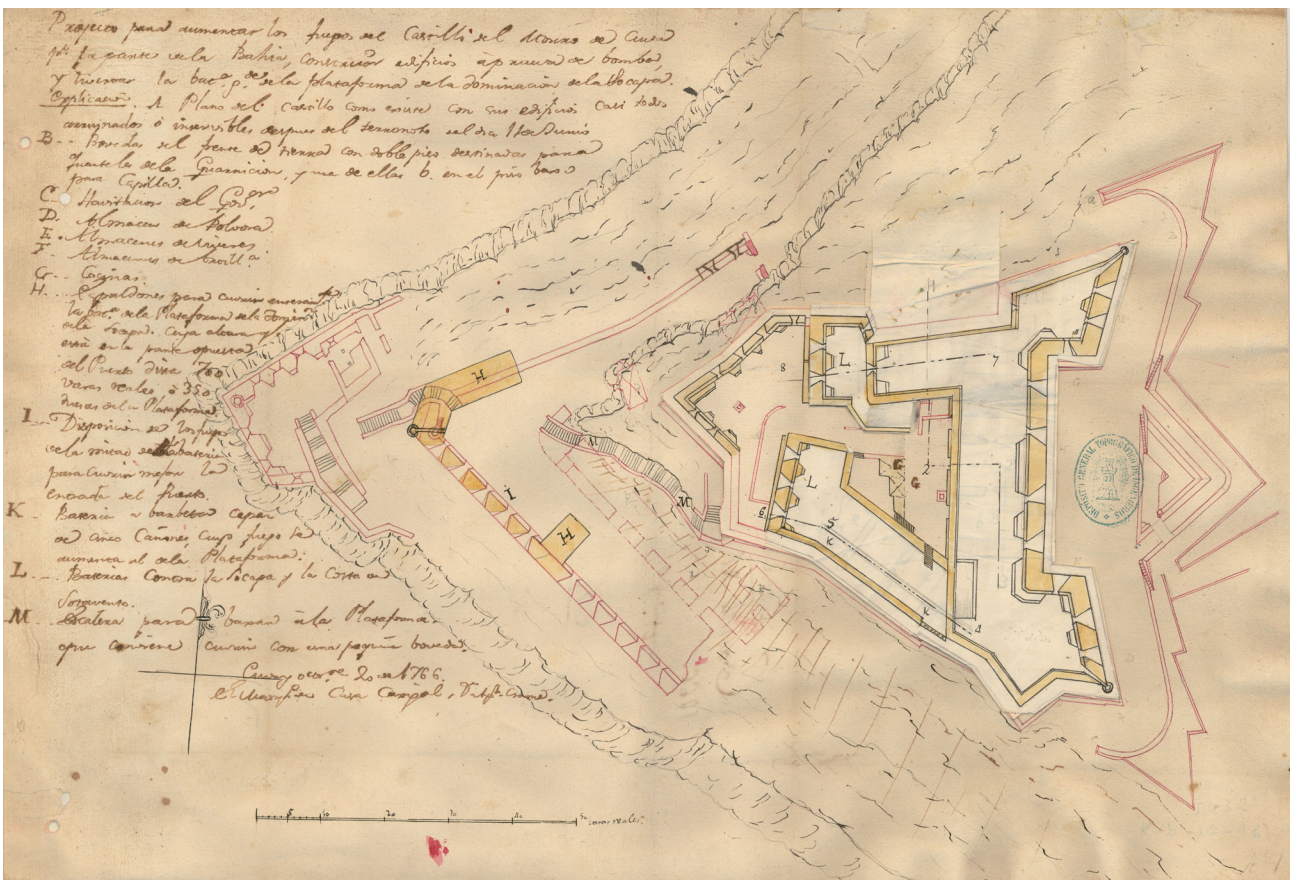 Projecto para aumentar los fuegos del Castillo del Morro de Cuva
pr. la parte de la Bahia, construir edificios à prueva de bomba,
y livertar la bata. ge. de la plataforma de la dominacion de la Socapa.
Explicacion. A Plano del Castillo como existe con sus edificios casi todos
arruinados ò inservibles despues del terremoto del dia 11 de Junio
B.. Bovedas del frente de tierra con doble piso destinadas para
Quarteles de la Guarnicion, y una de ellas b. en el piso baxo
para Capilla.
C.. Havitacion del Govor.
D. Almacen de Polvora
E. Almacenes de viveres
F. Almacenes de Artilla.
G.. Cocinas
H.. Espaldones para cuvrir enteramte.
la bata. de la Plataforma de la domin.
de la Socapa. Cuya altura
està en la parte opuesta
del Puerto dista 700
varas reales ò 350
de la Plataforma
I.. Disposicion de los fuegos
de la mitad de la bateria
para cuvrir mejor la
entrada del Puerto.
K.. Bateria a barbeta capaz
de cinco Cañones, cuyo fuego se
aumenta al de la Plataforma.
L.. Baterias Contra la Socapa y la Costa de
Sotavento.
M.. Escalera para baxar à la Plataforma
que conviene cuvrir con una pequeña boveda.
Cuva y ocre. 20 de 1766.
El Marqs. de Casa Cagigal
H
H
I
M
M
L
L
G
8
7
2
5
6
K
K
4
5
10
20
30
40
50 varas reales
DEPOSITO GENERAL TOPOGRAFICO DE INGENIEROS